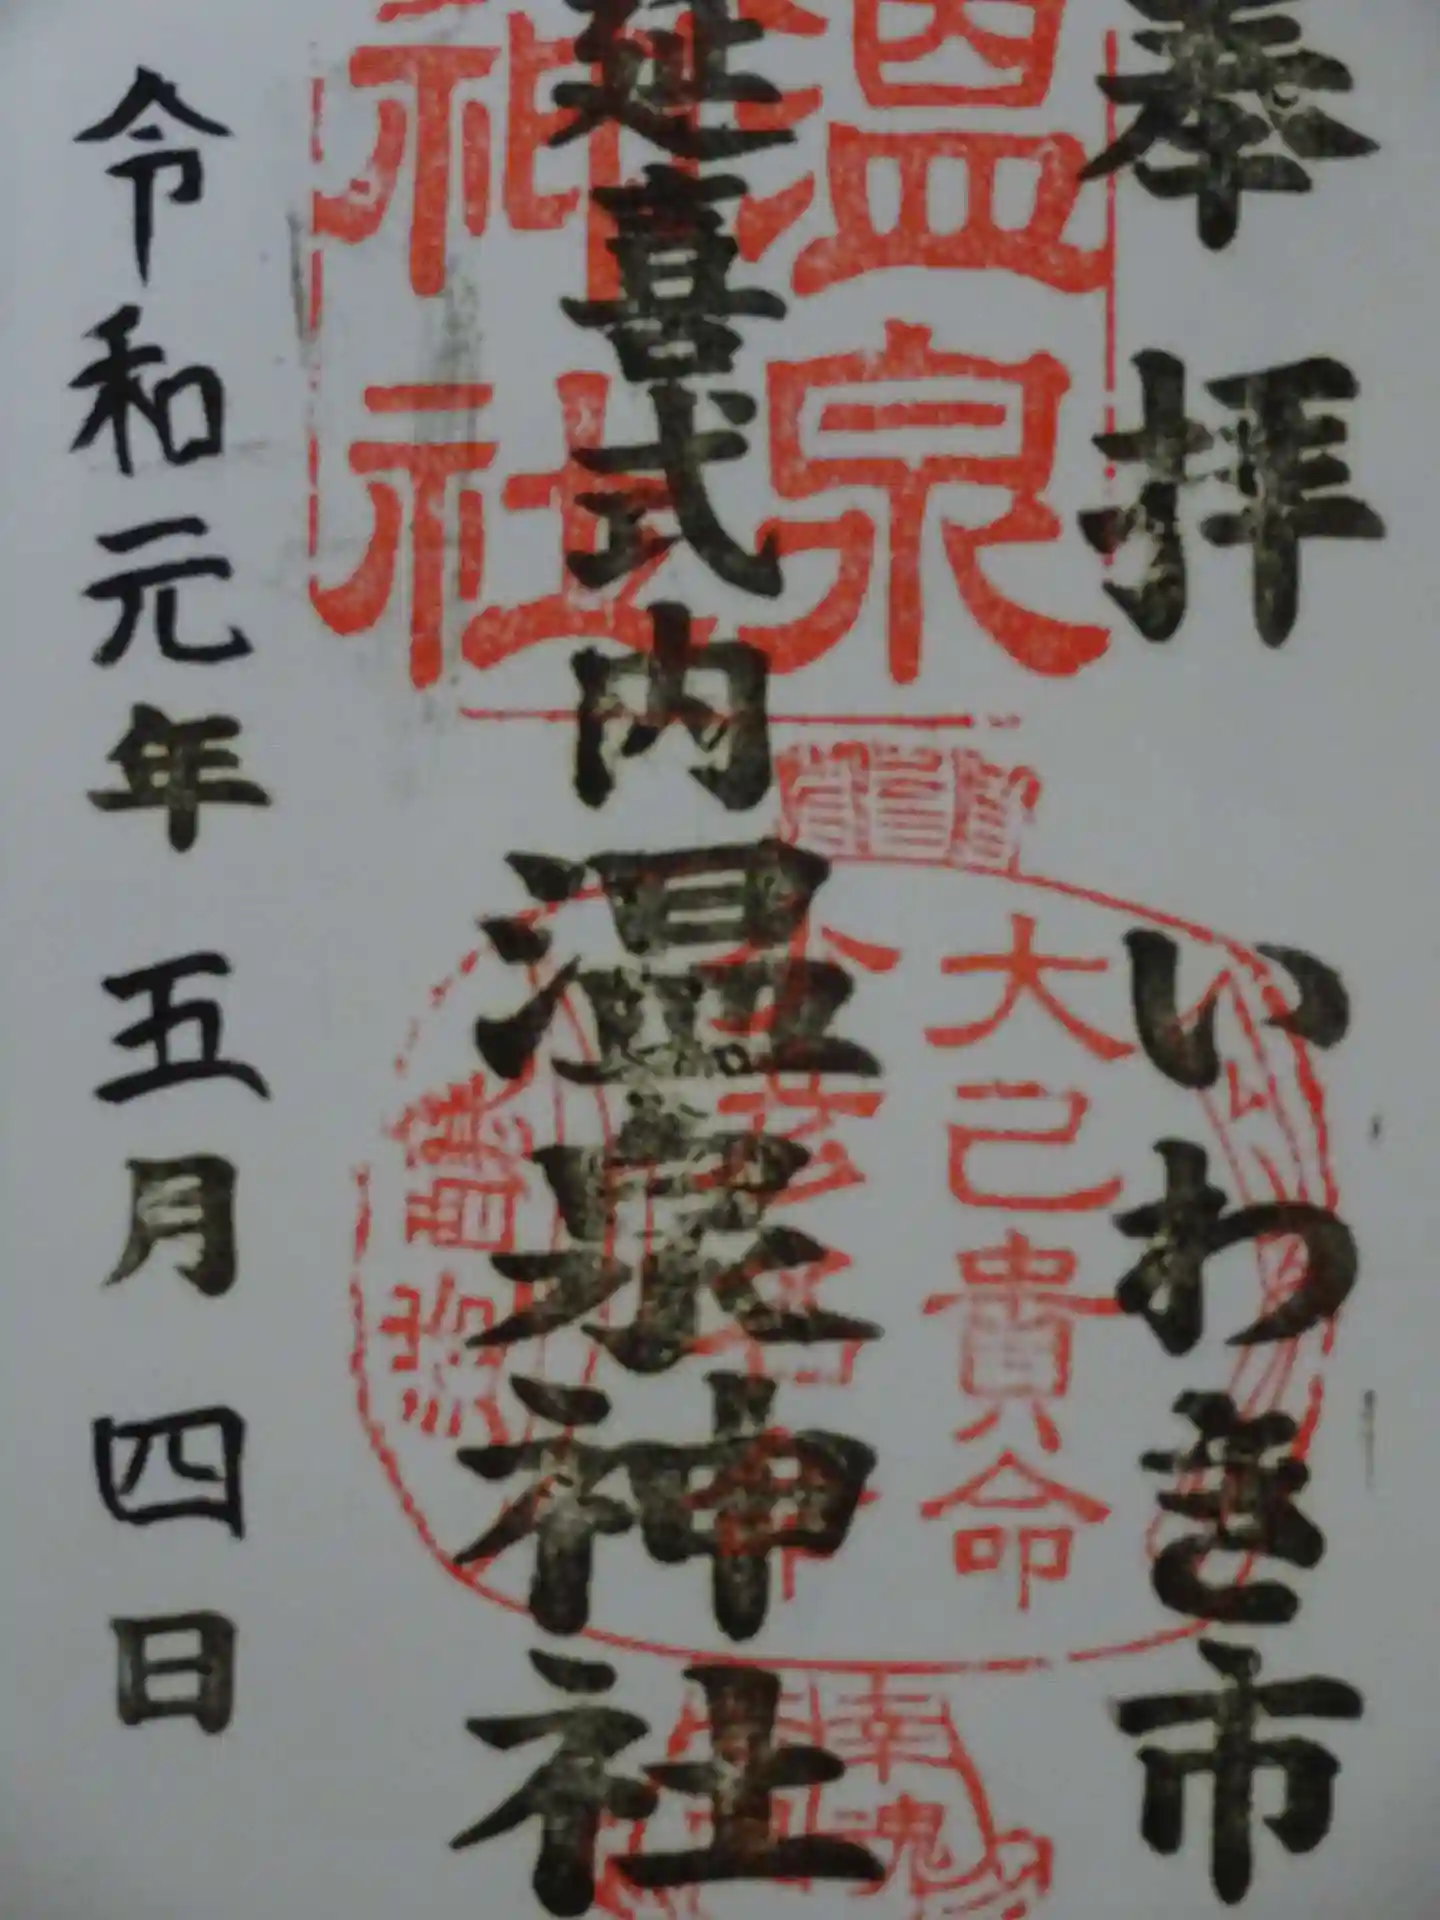 奉拝 いわき市
延喜式内 温泉神社
令和元年 五月 四日
温泉
神社
大己貴命
幸魂